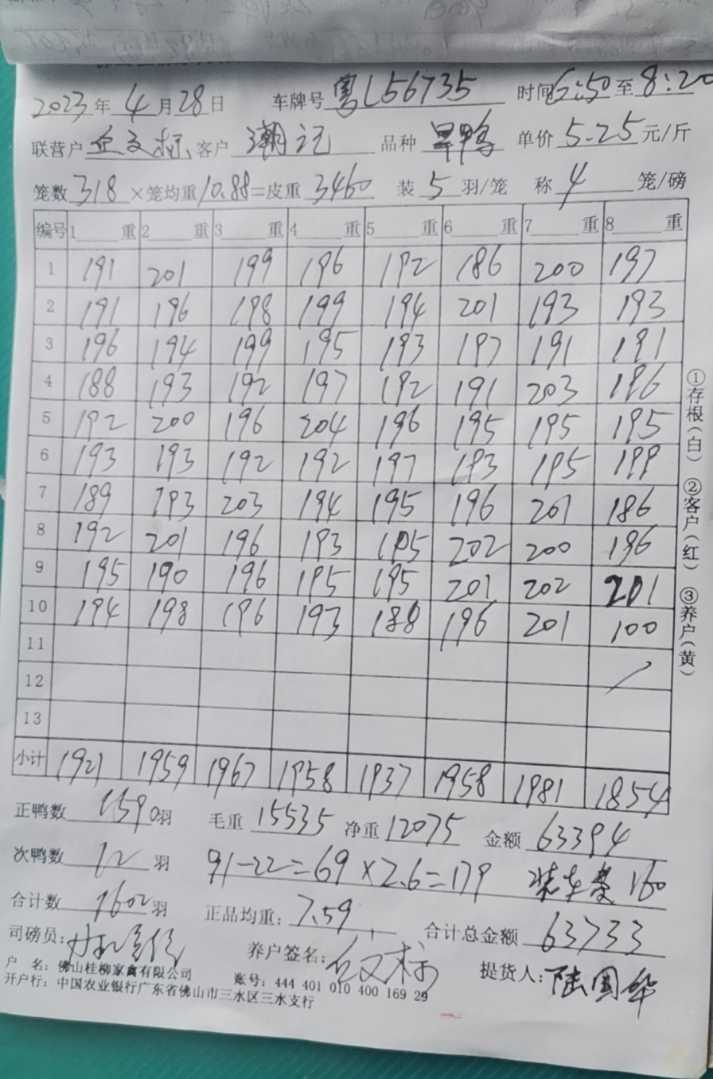 2023年4月28日 车牌号 粤L56735 时间6:50至8:20
联营户 客户 潮记 品种 旱鸭 单价5.25元/斤
笼数318×笼均重10.88=皮重3460 装5羽/笼 称4笼/磅
编号 1 重 2 重 3 重 4 重 5 重 6 重 7 重 8 重
1 191 201 199 196 192 186 200 197
2 191 196 198 199 194 201 193 193
3 196 194 199 195 193 197 191 191
4 188 193 192 197 192 191 203 196
5 192 200 196 204 196 195 195 195
6 193 193 192 192 197 193 195 199
7 189 193 203 194 195 196 201 186
8 192 201 196 193 195 202 200 196
9 195 190 196 195 195 201 202 201
10 194 198 196 193 188 196 201 100
11
12
13
小计 1921 1959 1967 1958 1937 1958 1981 1854
正鸭数1590羽 毛重15535 净重12075 金额63394
次鸭数12羽 91-22=69×2.6=179 装车费160
合计数1602羽 正品均重:7.59 合计总金额63733
司磅员: 养户签名: 提货人:陆国华
户 名:佛山桂柳家禽有限公司 账号:444 401 010 400 169 29
开户行:中国农业银行广东省佛山市三水区三水支行
①存根(白) ②客户(红) ③养户(黄)